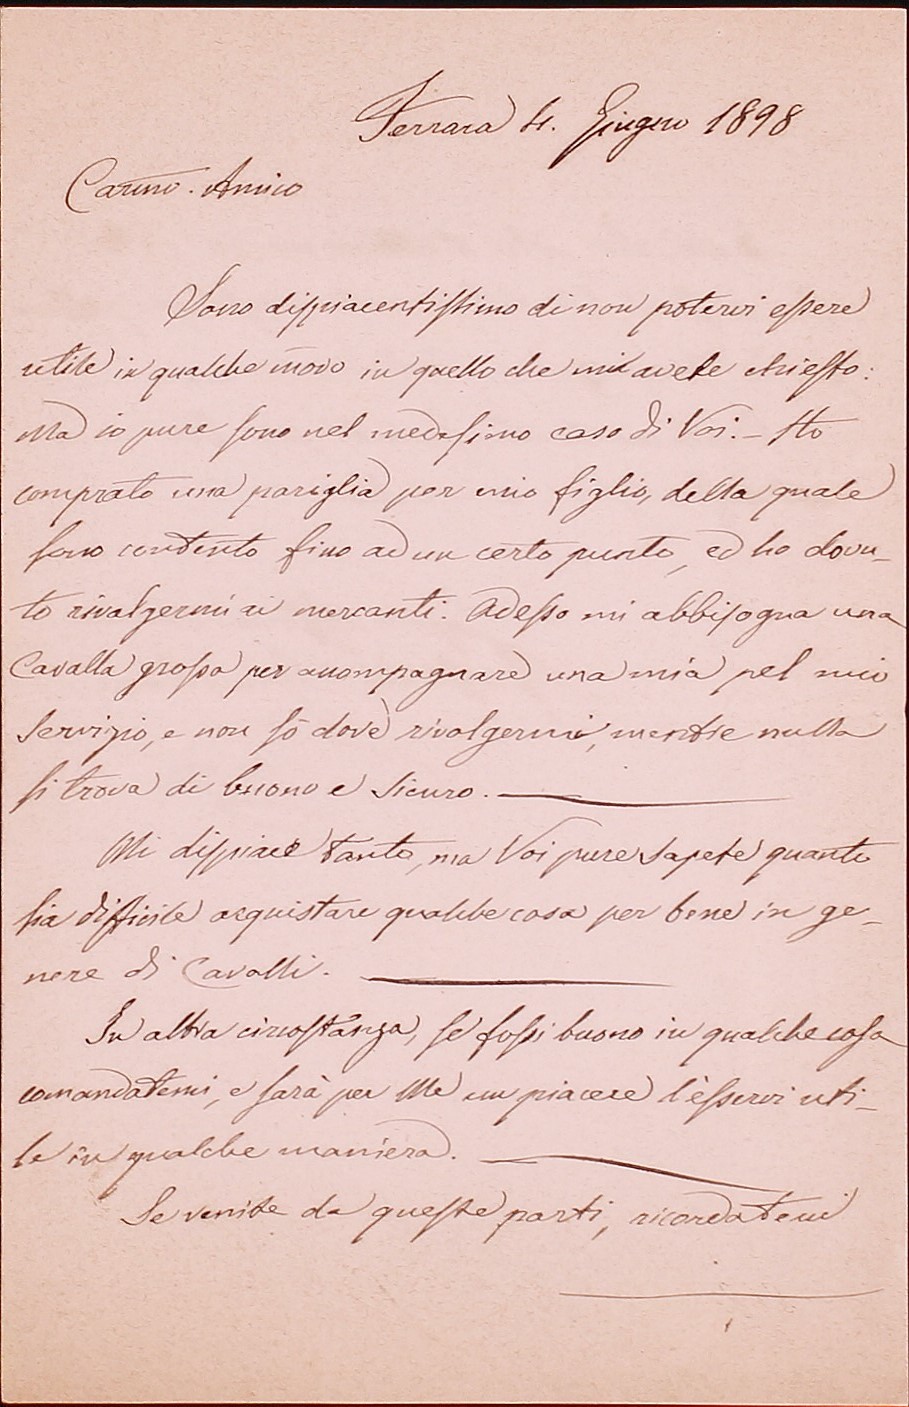 Ferrara 4. Giugno 1898
Carmo. Amico
Sono dispiacentissimo di non potervi essere
utile in qualche modo in quello che mi avete chiesto:
Ma io pure sono nel medesimo caso di Voi. – Ho
comprato una pariglia per mio figlio, della quale
sono contento fino ad un certo punto, ed ho dovu-
to rivolgermi ai mercanti. Adesso mi abbisogna una
Cavalla grossa per accompagnare una mia pel mio
Servizio, e non sò dove rivolgermi, mentre nulla
si trova di buono e sicuro.
Mi dispiace tanto, ma Voi pure sapete quanto
sia difficile acquistare qualche cosa per bene in ge-
nere di Cavalli.
In altra circostanza, se fossi buono in qualche cosa
comandatemi, e sarà per Me un piacere l'èsservi uti-
le in qualche maniera.
Se venite da queste parti, ricordatemi